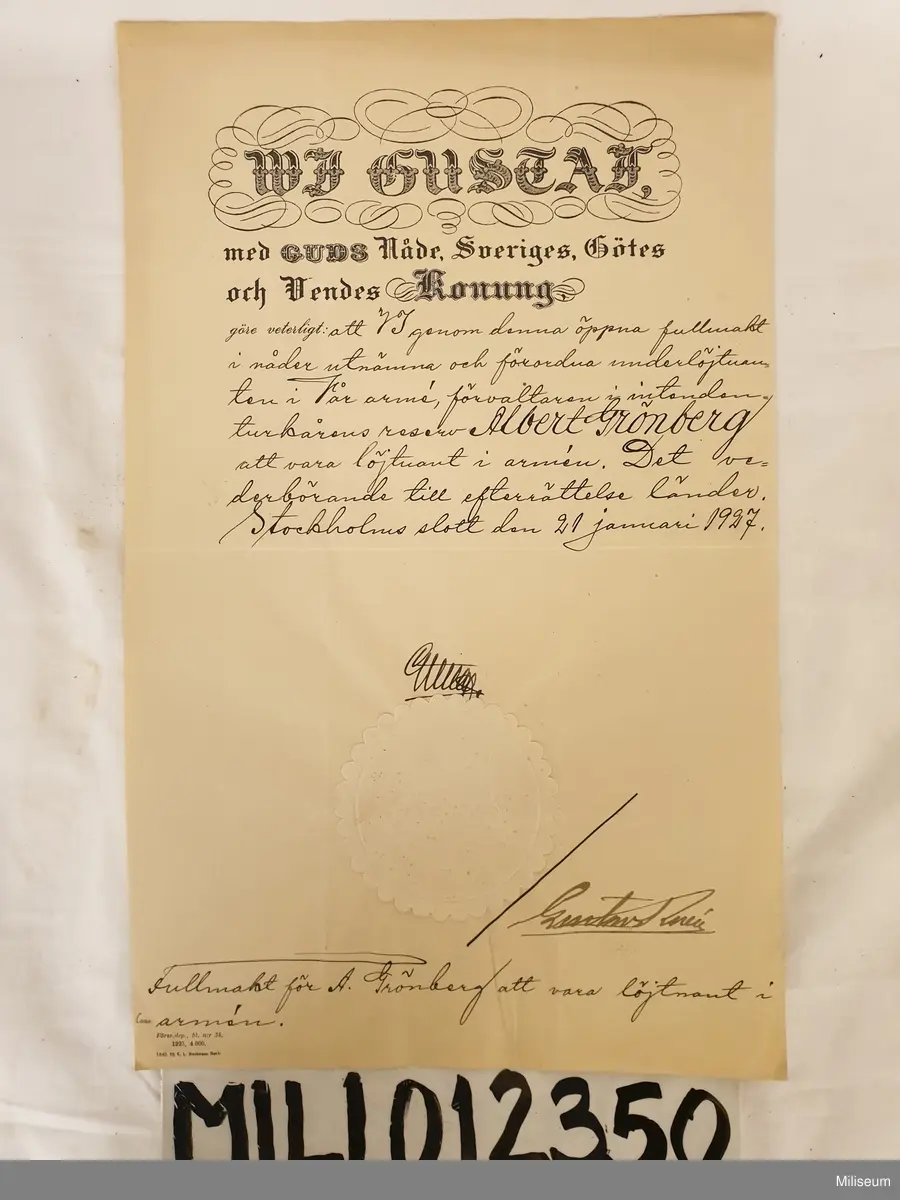 WJ GUSTAF,
med GUDS Nåde, Sveriges, Götes
och Vendes Konung,
göre veterligt: att VJ genom denna öppna fullmakt
i nåder utnämna och förordna underlöjtnan-
ten i Vår armé, förvaltaren i intenden-
turkårens reserv Albert Grönberg
att vara löjtnant i armén. Det ve=
derbörande till efterrättelse länder.
Stockholms slott den 21 januari 1927.
Gustaf
Fullmakt för A. Grönberg att vara löjtnant i
armén.
MILI 012350
Miliseum